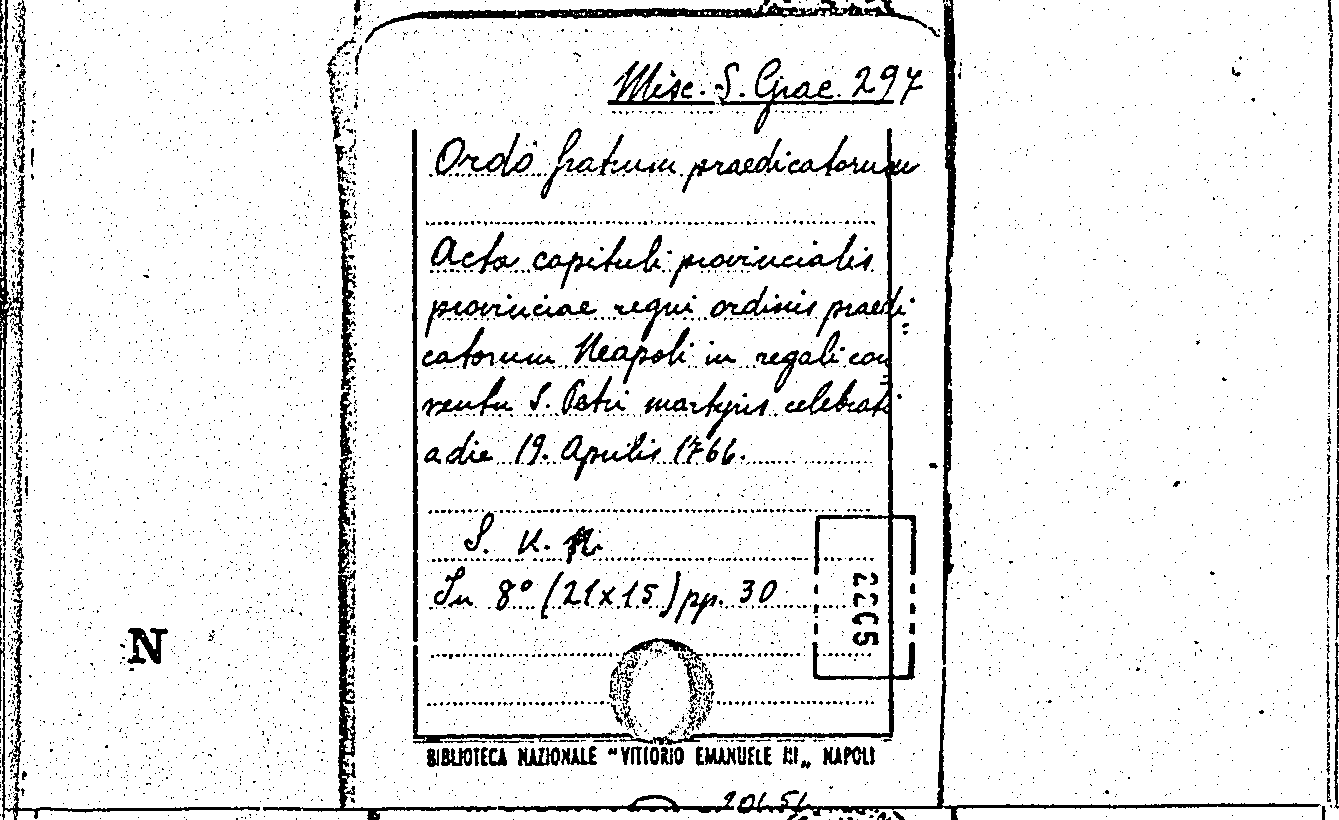 Misc. S. Grae 297
Ordo fratrum praedicatorum
Acta capituli provincialis
provinciae regni ordinis praedi:
catorum Neapoli in regali con
ventu S. Petri martyris celebrati
a die 19. Aprilis 1766.
S. V. N.
In 8° (21x15) pp. 30
2205
N
BIBLIOTECA NAZIONALE "VITTORIO EMANUELE III„ NAPOLI